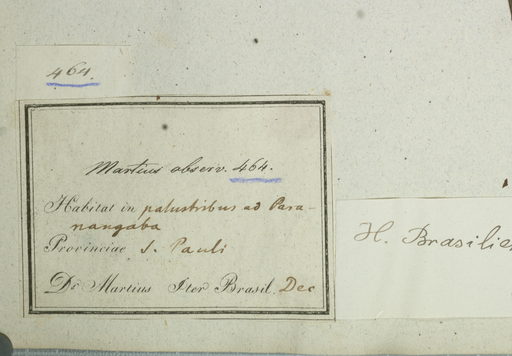 464.
Martius observ. 464.
Habitat in palustribus ad Para-
nangaba
Provinciae S. Pauli
Dr Martius Iter Brasil. Dec
H. Brasilien